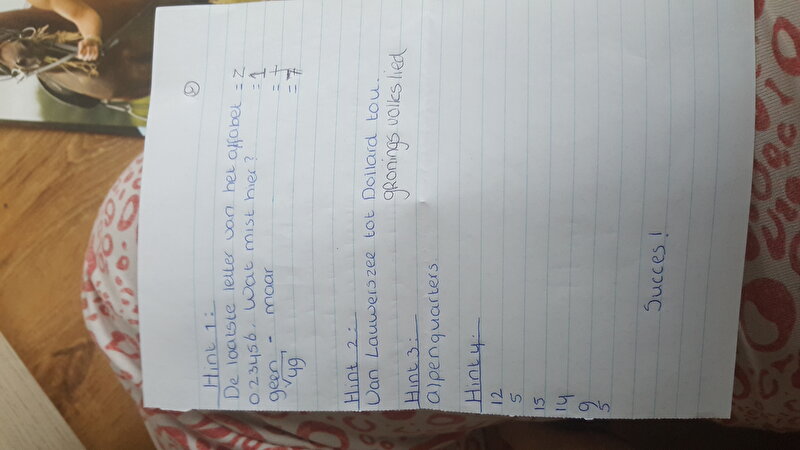 Hint 1:
De laatste letter van het alfabet = Z
023456. Wat mist hier? = 1
geen - maar =
√49 = 7
Hint 2:
Van Lauwerszee tot Dollard tou.
gronings volkslied
Hint 3:
alpenquarters
Hint 4:
12
5
15
14
9
5
Succes!